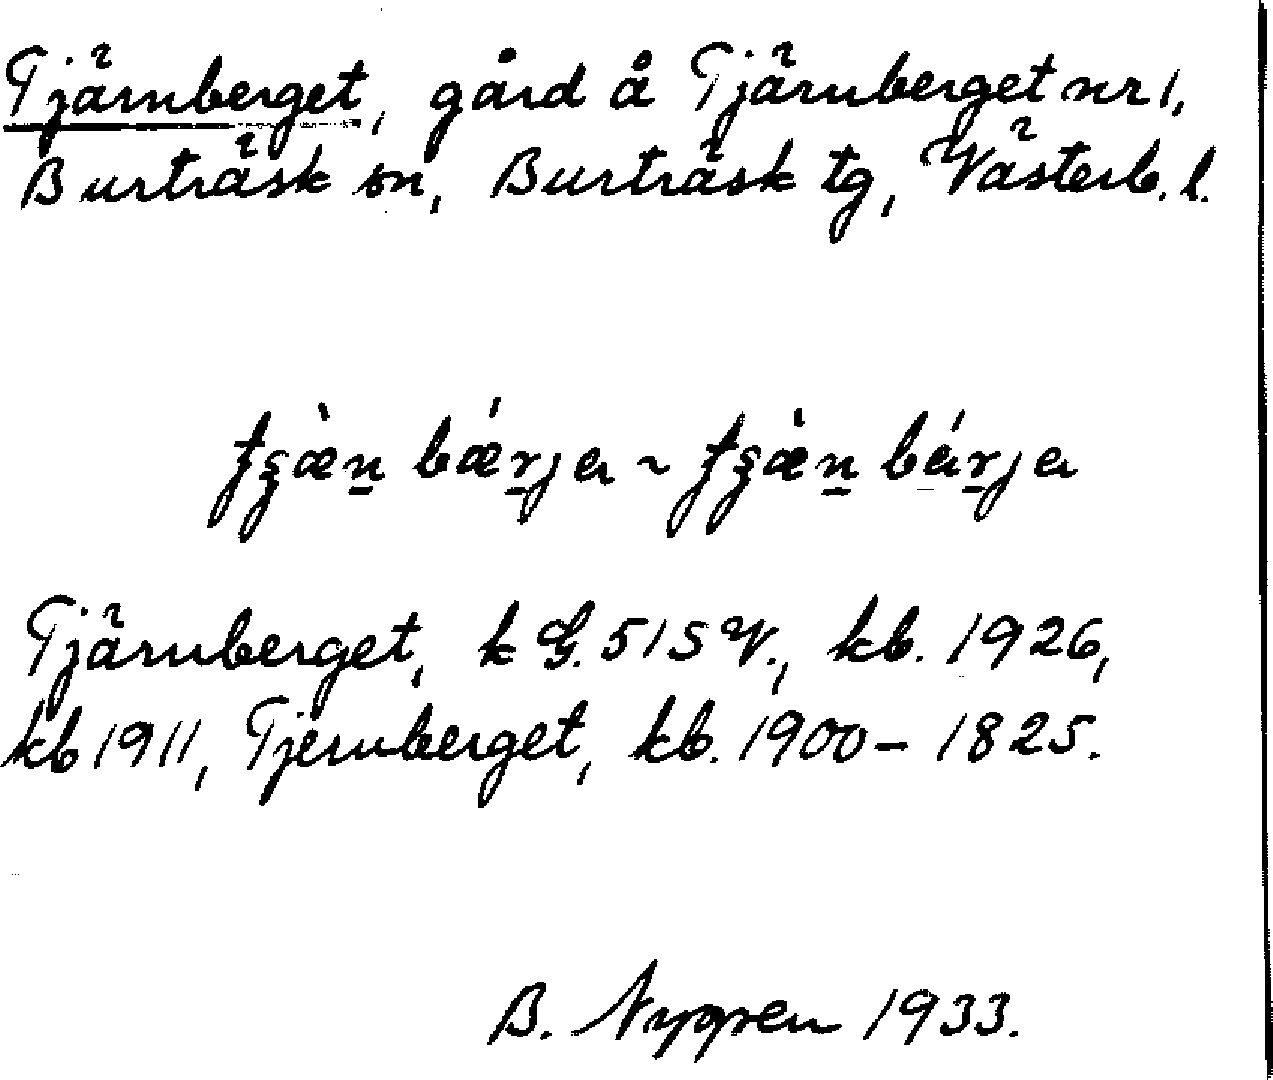 Tjärnberget, gård å Tjärnberget nr 1,
Burträsk sn, Burträsk tg, Västerb. l.
Tjärnberget, k G. 515 V., kb. 1926,
kb 1911, Tjernberget, kb. 1900 – 1825.
B. Nygren 1933.